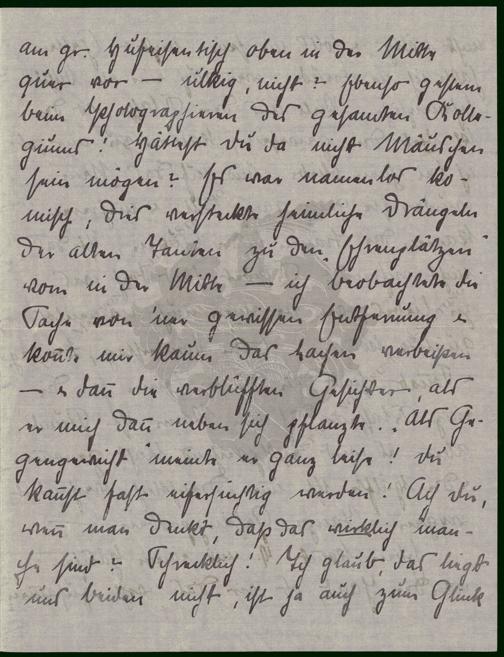 am gr. Hufeisentisch oben in der Mitte
quer vor — ulkig, nicht? Ebenso gestern
beim Photographieren des gesamten Kolle-
giums! Hättest du da nicht Mäuschen
sein mögen? Es war namenlos ko-
misch, dies versteckte heimliche Drängeln
der alten Tanten zu den "Ehrenplätzen"
vorn in der Mitte — ich beobachtete die
Sache von 'ner gewissen Entfernung u
kon̄te mir kaum das Lachen verbeißen
— u dan̄ die verblüfften Gesichter, als
er mich dan̄ neben sich pflanzte. „Als Ge-
gengewicht" meinte er ganz leise! Du
kan̄st fast eifersüchtig werden! Ach du,
wen̄ man denkt, daß das wirklich man-
che sind? Schrecklich! Ich glaub, das liegt
uns beiden nicht, ist ja auch zum Glück